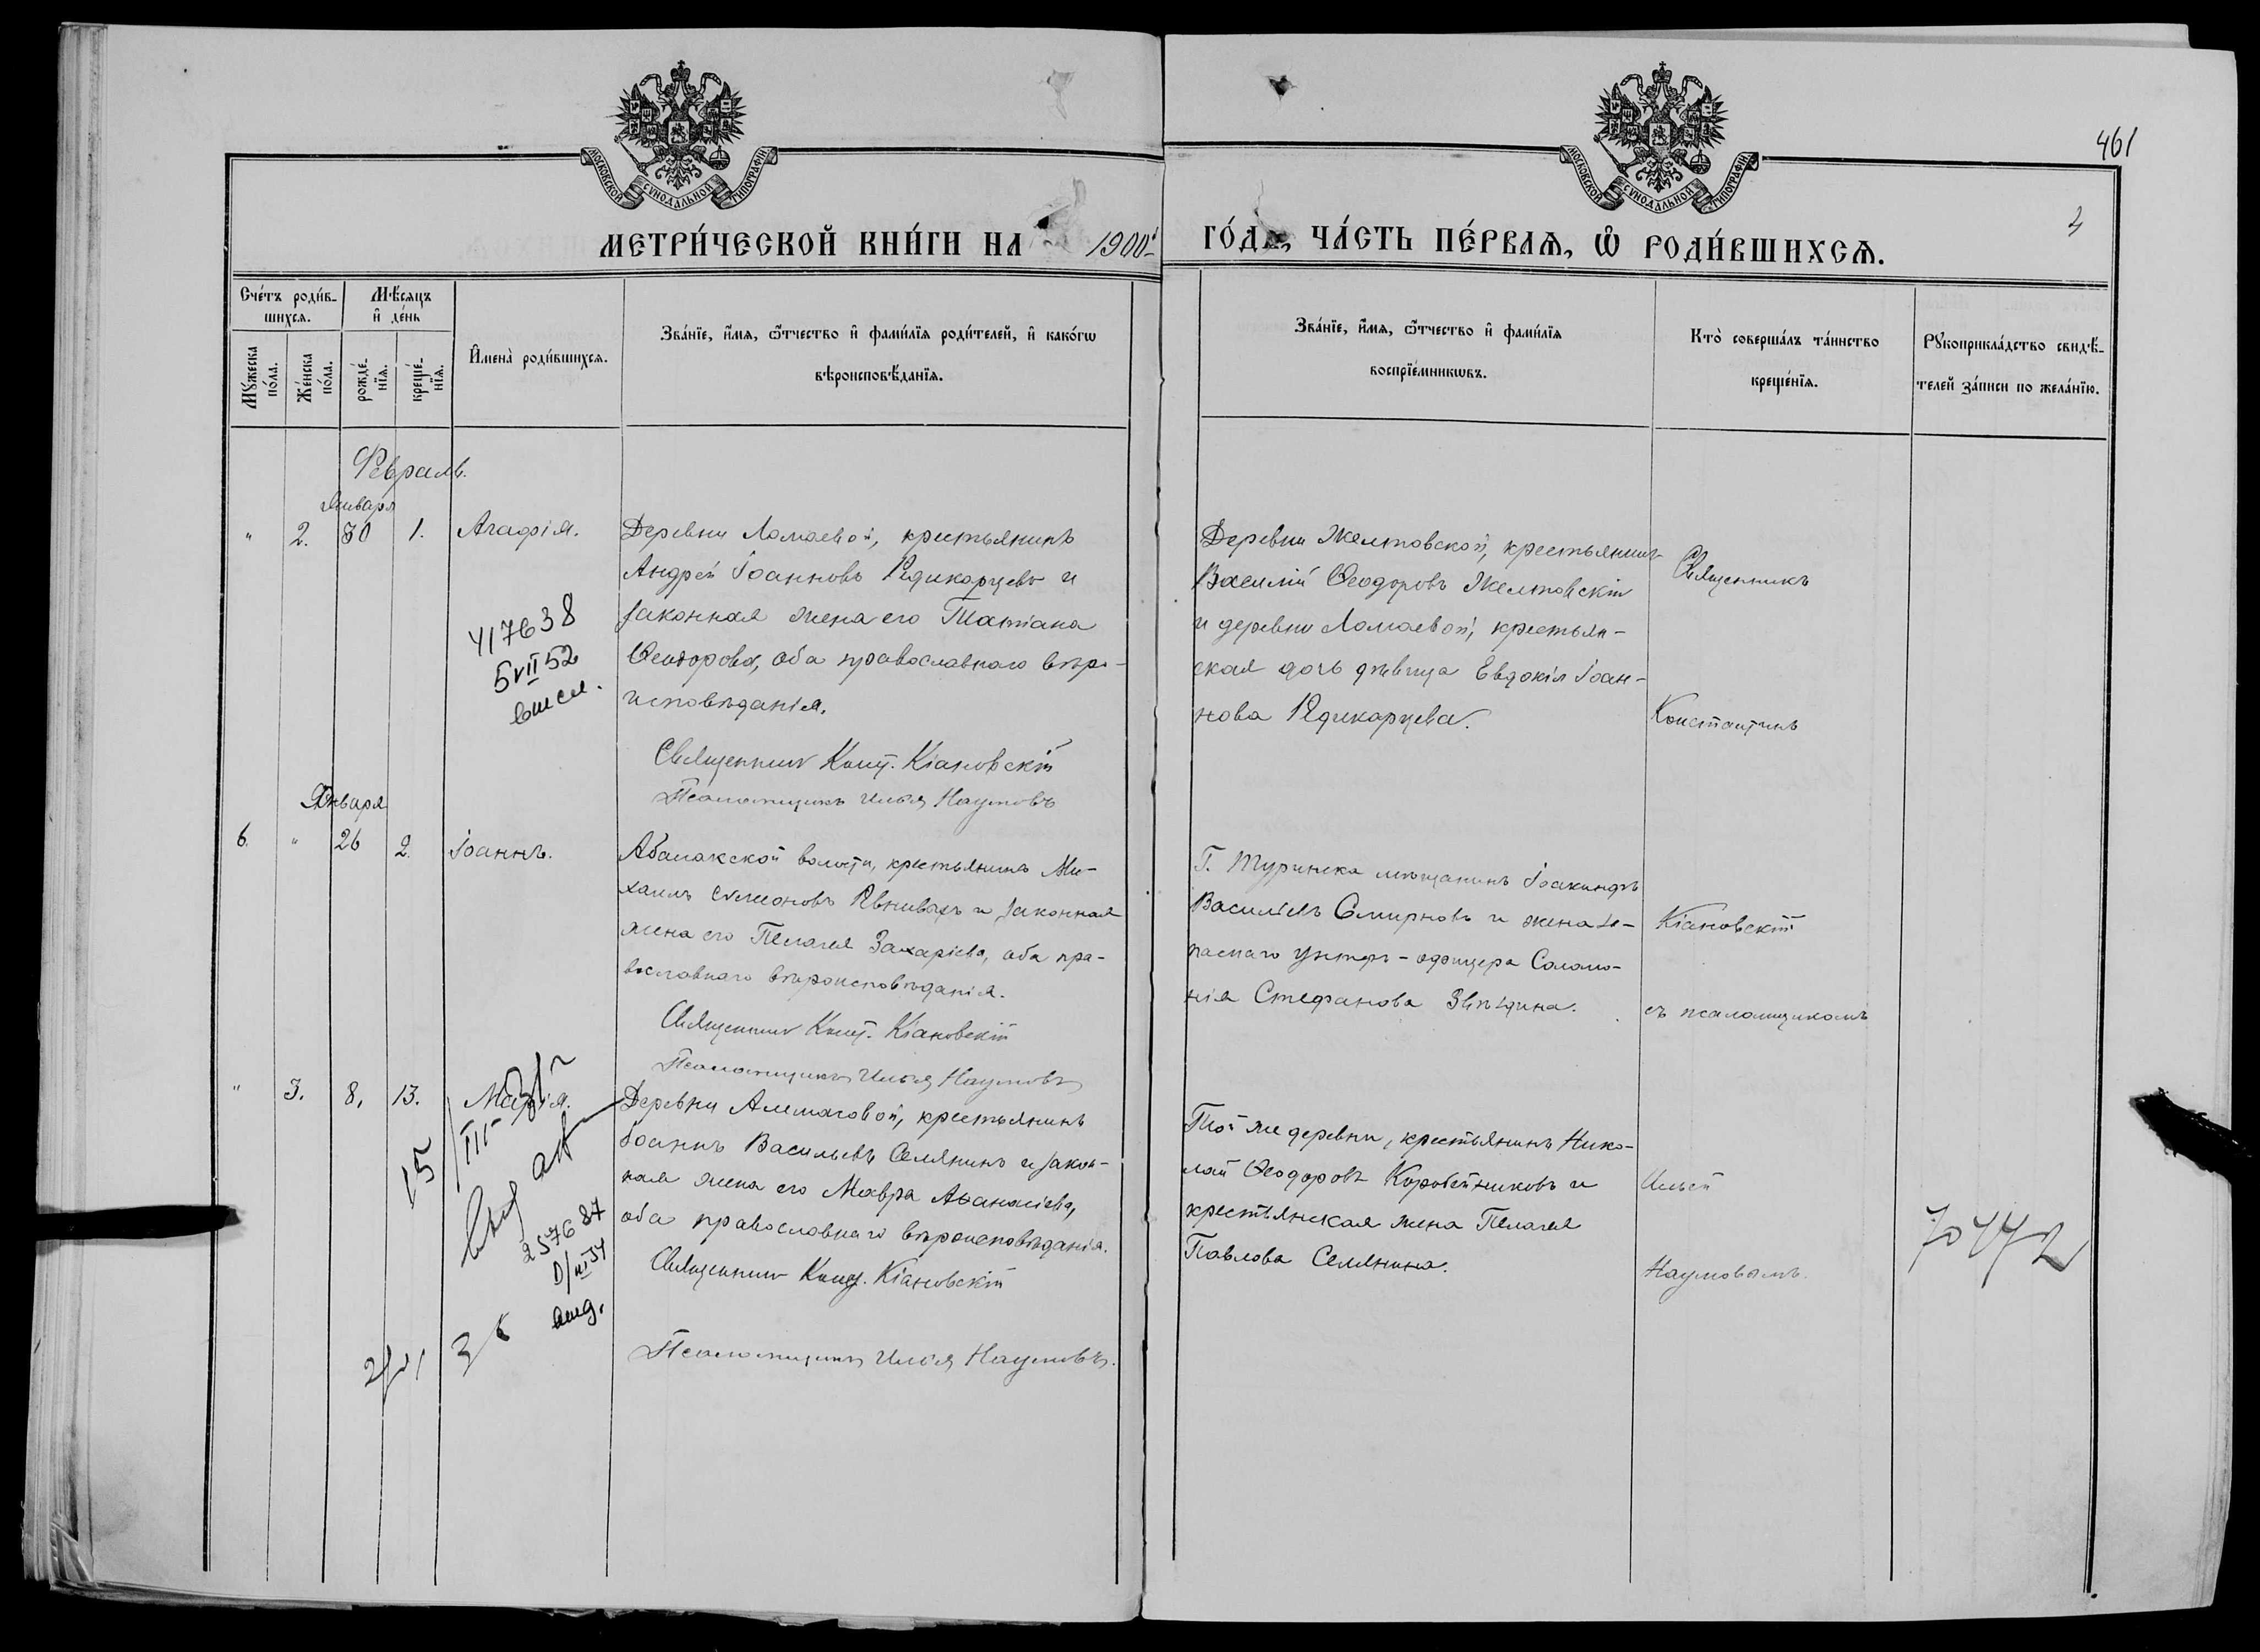 461
4
МОСКОВСКОЙ СѴНОДАЛЬНОЙ ТИПОГРАФІИ
МОСКОВСКОЙ СѴНОДАЛЬНОЙ ТИПОГРАФІИ
МЕТРИ́ЧЕСКОЙ КНИ́ГИ НА 1900й
ГО́ДЪ, ЧА́СТЬ ПЕ́РВАѦ, Ѽ РОДИ́ВШИХСѦ.
Сче́тъ роди́в-
шихсѧ.
Мꙋ́жеска по́ла.
Же́нска по́ла.
Мѣ́сяцъ
и҆ де́нь
рожде́-
нїѧ.
креще́-
нїѧ.
И҆мена̀ роди́вшихсѧ.
Зва́нїе, и҆́мѧ, ѻ҆́тчество и҆ фами́лїѧ роди́телей, и҆ како́гѡ
вѣроисповѣ́данїѧ.
Зва́нїе, и҆́мѧ, ѻ҆́тчество и҆ фами́лїѧ
воспрїе́мникѡвъ.
Кто̀ соверша́лъ та́инство
креще́нїѧ.
Рꙋкоприкла́дство свидѣ́-
телей за́писи по жела́нїю.
Февраль.
Января
" 2. 30 1. Агафія.
Деревни Ломаевой, крестьянинъ
Андрей Іоанновъ Рѣдикорцевъ и
законная жена его Татіана
Ѳеодорова, оба православнаго вѣро-
исповѣданія.
Священникъ Конст. Кіановскій
Псаломщикъ Илія Наумовъ
417638
5 VII 52
Деревни Желтовской, крестьянинъ
Василій Ѳеодоровъ Желтовскій
и деревни Ломаевой, крестьян-
ская дочь дѣвица Евдокія Іоан-
нова Рѣдикорцева.
Священникъ
Константинъ
Января
6. " 26 2. Іоаннъ.
Абалакской волости, крестьянинъ Ми-
хаилъ Сѵмеоновъ и законная
жена его Пелагея Захаріева, оба пра-
вославнаго вѣроисповѣданія.
Священникъ Конст. Кіановскій
Псаломщикъ Илія Наумовъ
Г. Туринска мѣщанинъ Іоакинфъ
Василіевъ Смирновъ и жена за-
паснаго унтеръ-офицера Соломо-
нія Стефанова Звѣздина.
Кіановскій
съ псаломщикомъ
" 3. 8. 13. Марія.
Деревни Алемасовой, крестьянинъ
Іоаннъ Васильевъ Селянинъ и закон-
ная жена его Мавра Аѳанасіева,
оба православнаго вѣроисповѣданія.
Священникъ Конст. Кіановскій
Псаломщикъ Илія Наумовъ.
15
257687
Той же деревни, крестьянинъ Нико-
лай Ѳеодоровъ Коробейниковъ и
крестьянская жена Пелагея
Павлова Селянина.
Иліей
Наумовымъ.